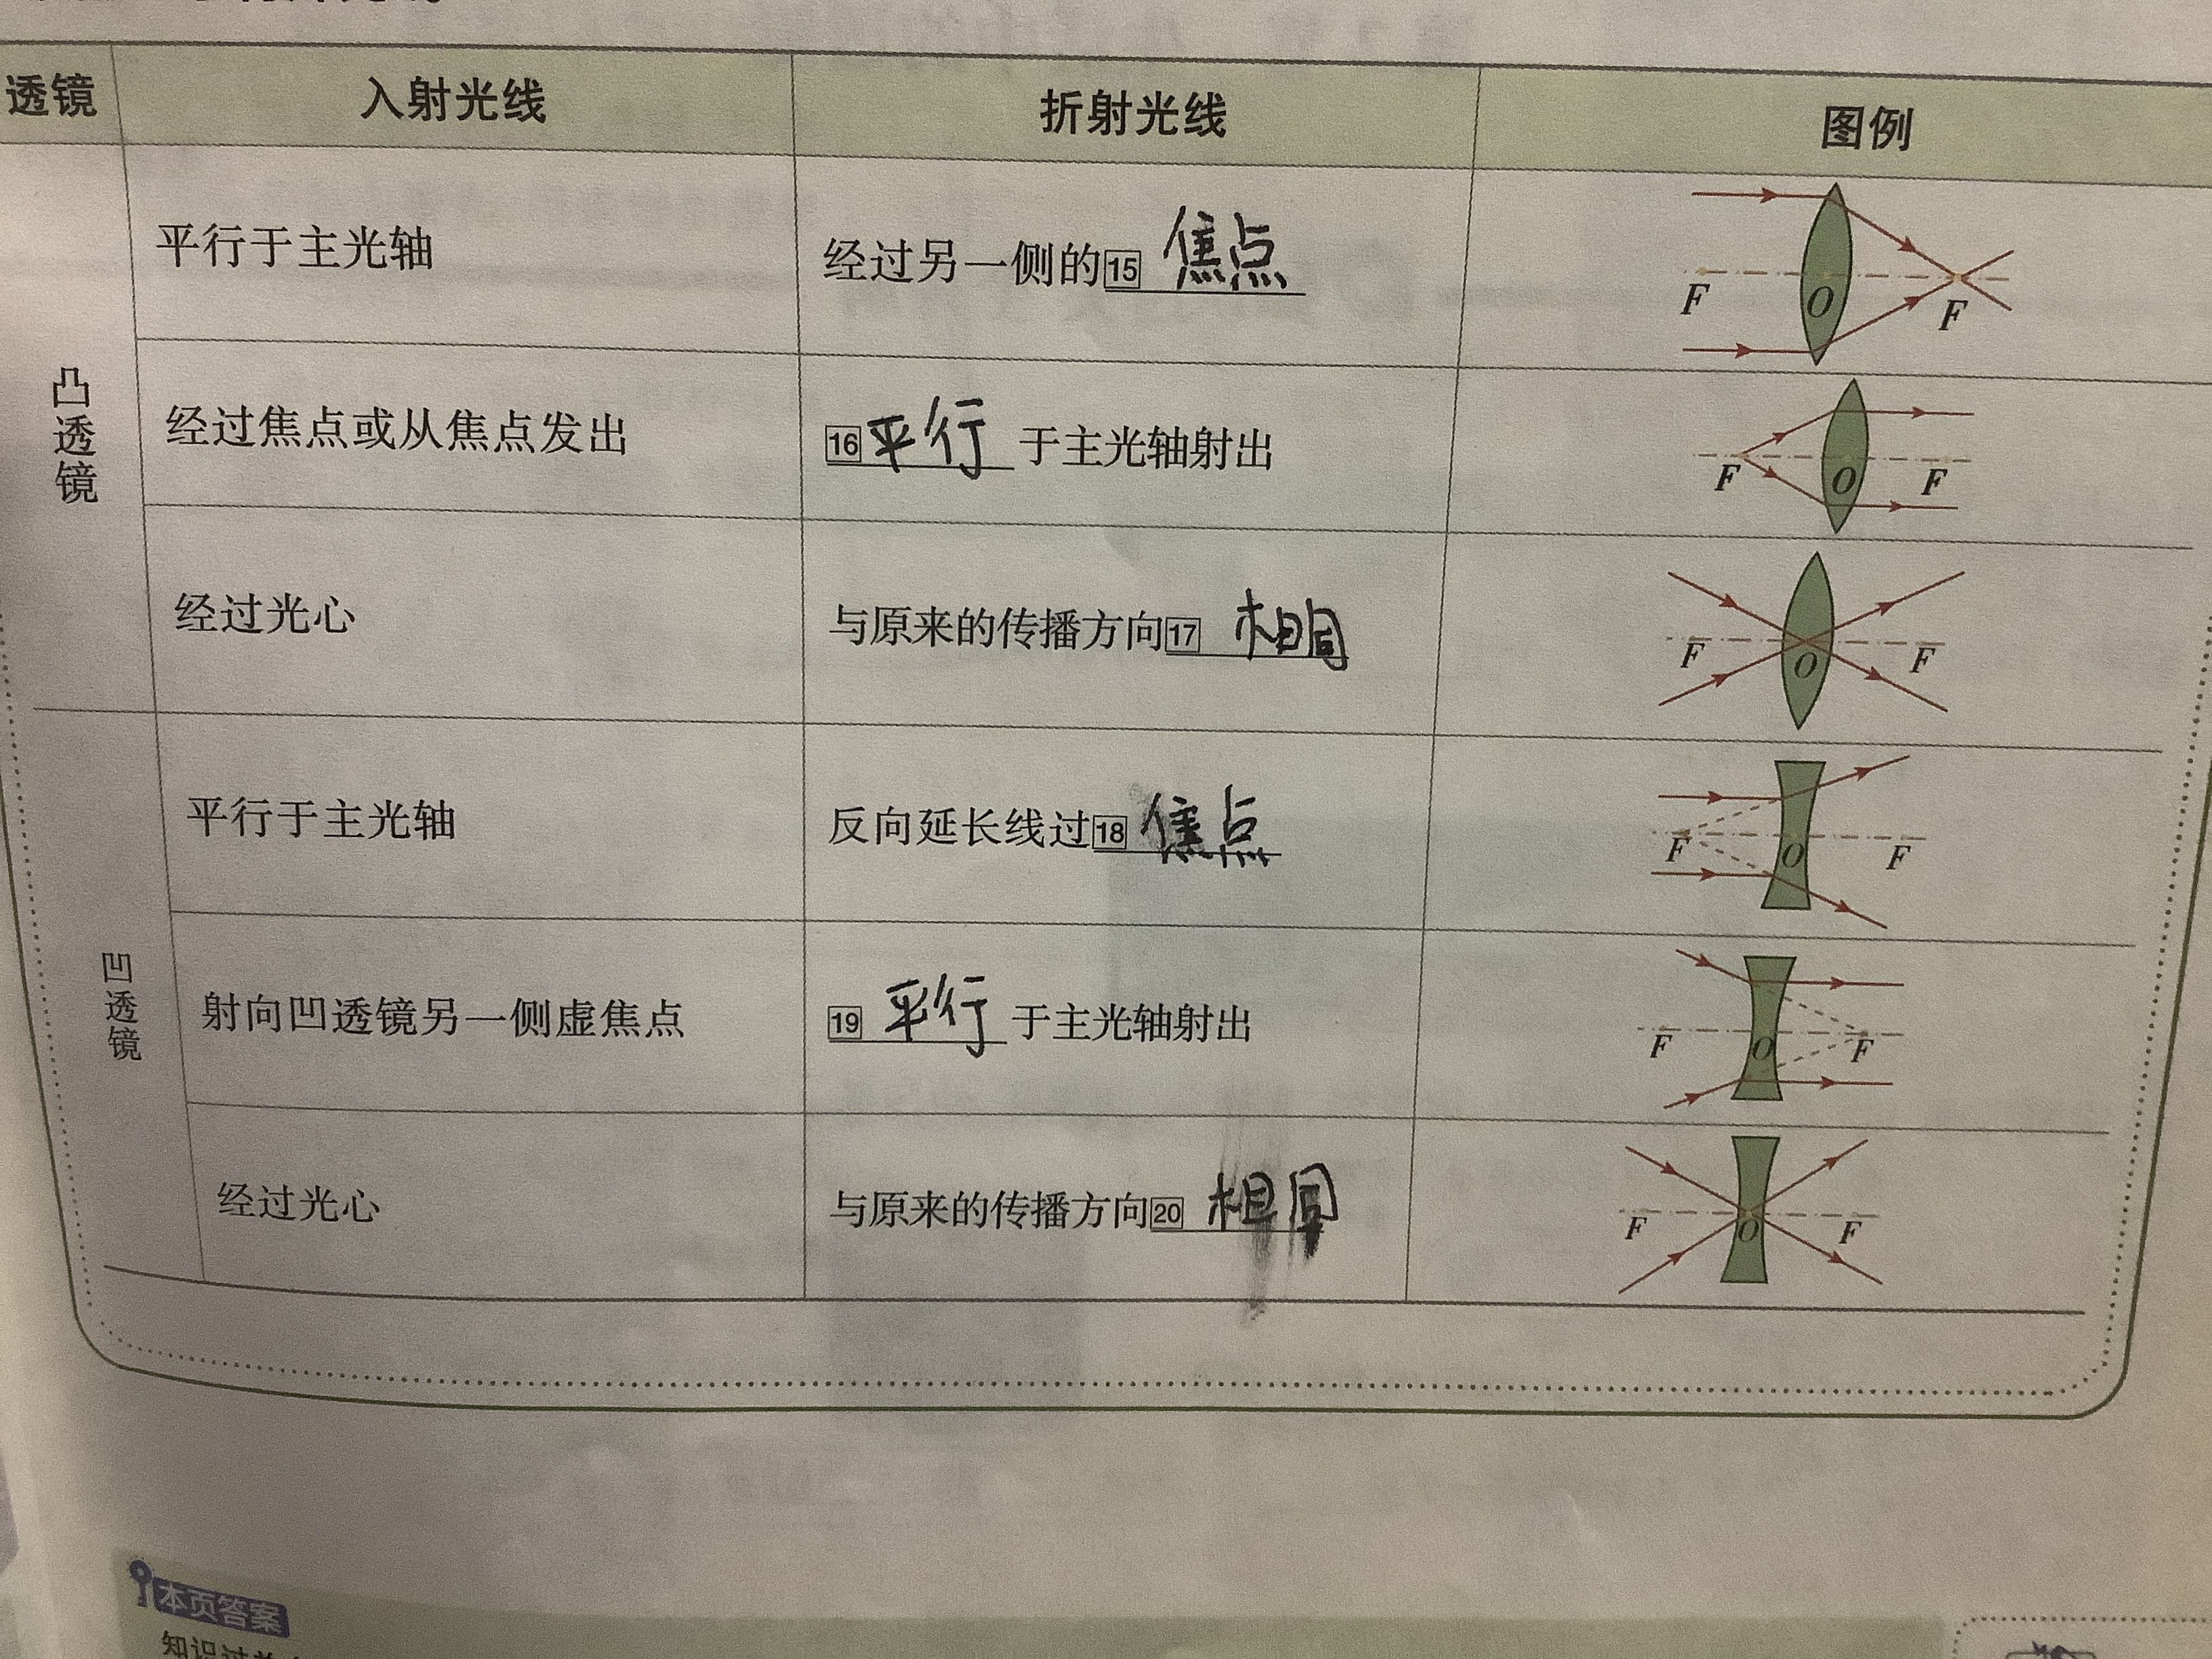 透镜 入射光线 折射光线 图例
凸透镜
平行于主光轴 经过另一侧的15 焦点
F O F
经过焦点或从焦点发出 16平行 于主光轴射出
F O F
经过光心 与原来的传播方向17 相同
F O F
凹透镜
平行于主光轴 反向延长线过18 焦点
F O F
射向凹透镜另一侧虚焦点 19 平行 于主光轴射出
F O F
经过光心 与原来的传播方向20 相同
F O F
本页答案
知识过关